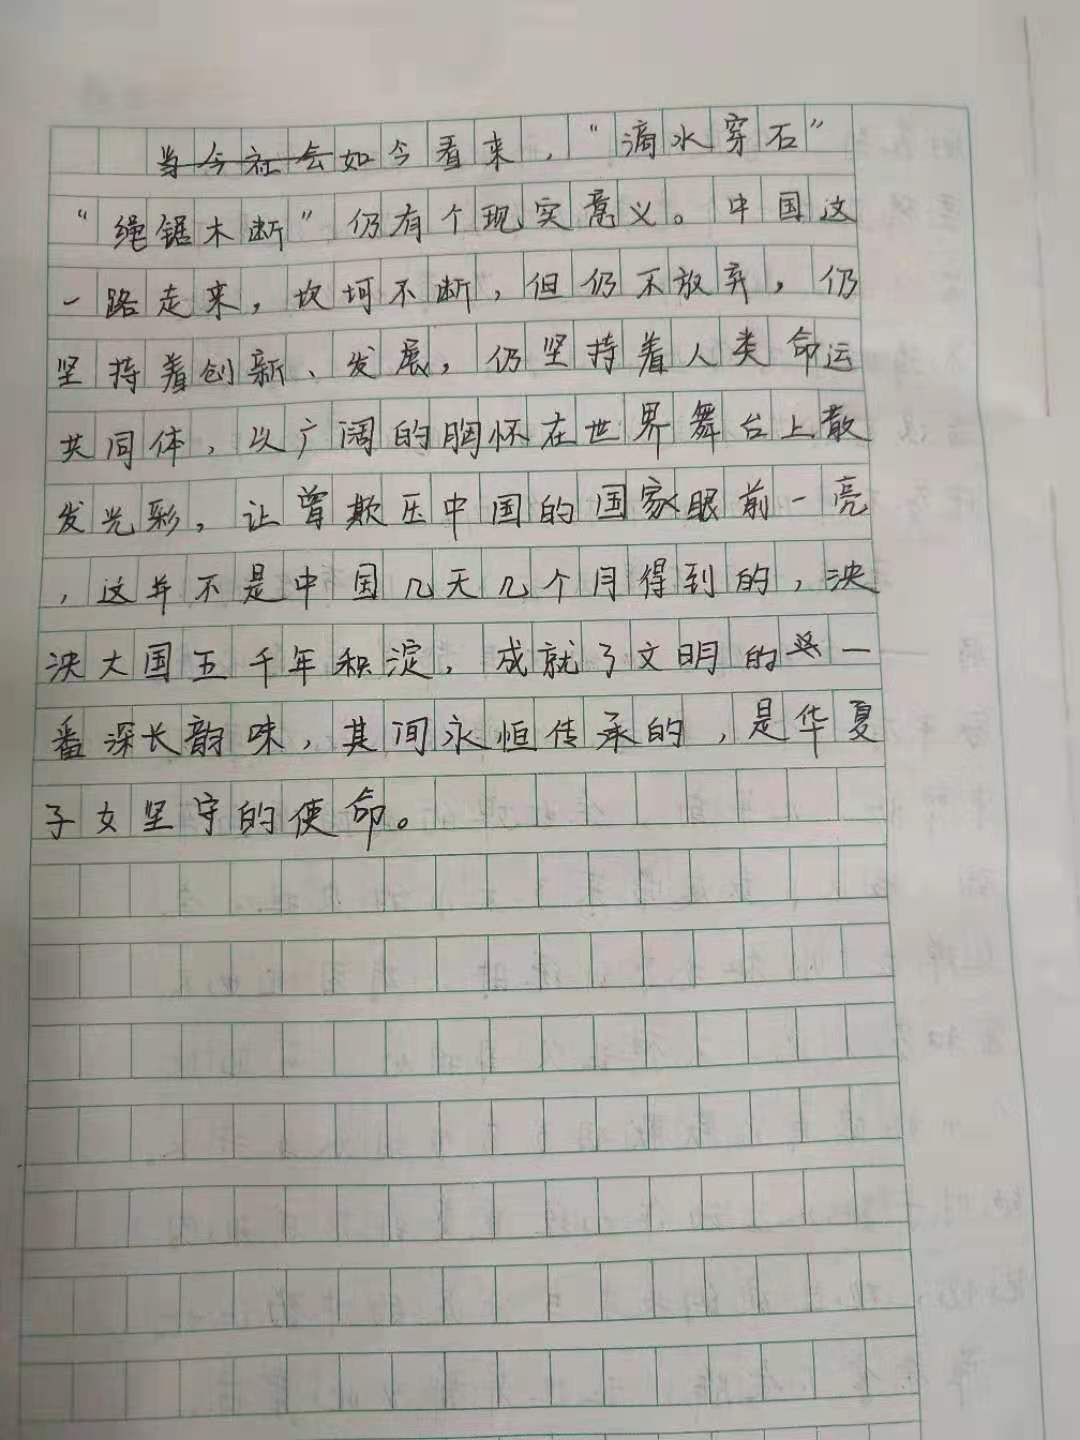 当今社会如今看来，“滴水穿石”
“绳锯木断”仍有个现实意义。中国这
一路走来，坎坷不断，但仍不放弃，仍
坚持着创新、发展，仍坚持着人类命运
共同体，以广阔的胸怀在世界舞台上散
发光彩，让曾欺压中国的国家眼前一亮
，这并不是中国几天几个月得到的，泱
泱大国五千年积淀，成就了文明的一
番深长韵味，其间永恒传承的，是华夏
子女坚守的使命。